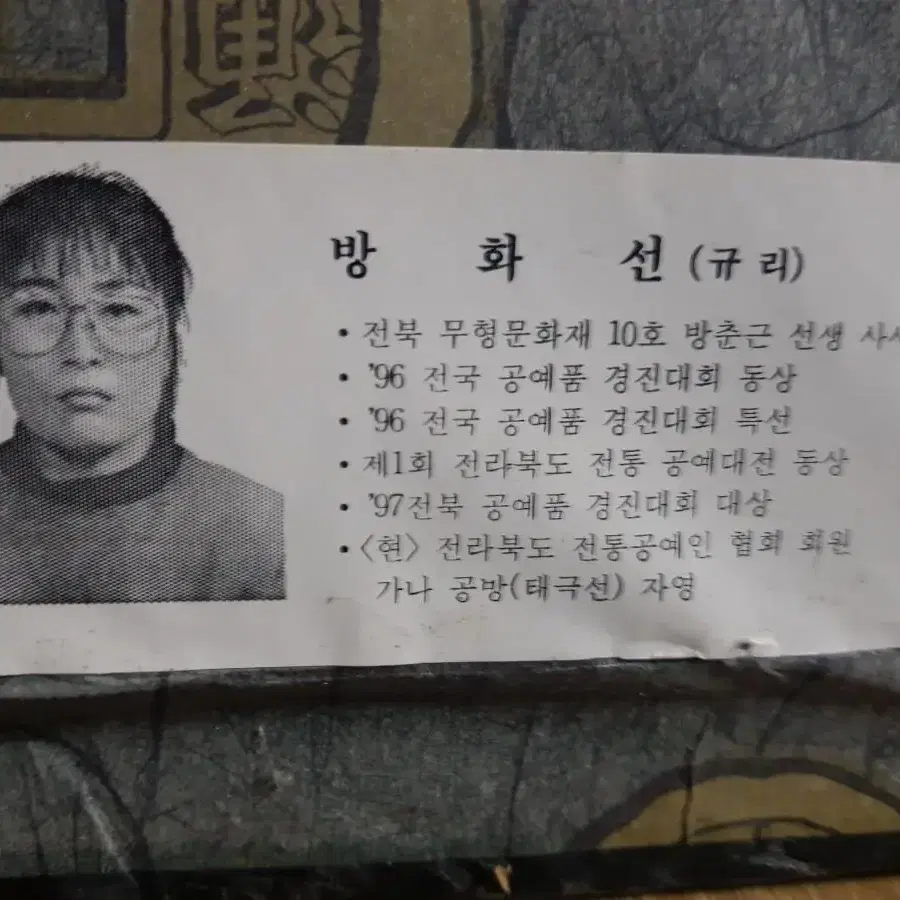 방 화 선 (규리)
• 전북 무형문화재 10호 방춘근 선생
• '96 전국 공예품 경진대회 동상
• '96 전국 공예품 경진대회 특선
• 제1회 전라북도 전통 공예대전 동상
• '97전북 공예품 경진대회 대상
• 〈현〉 전라북도 전통공예인 협회 회원
가나 공방(태극선) 자영